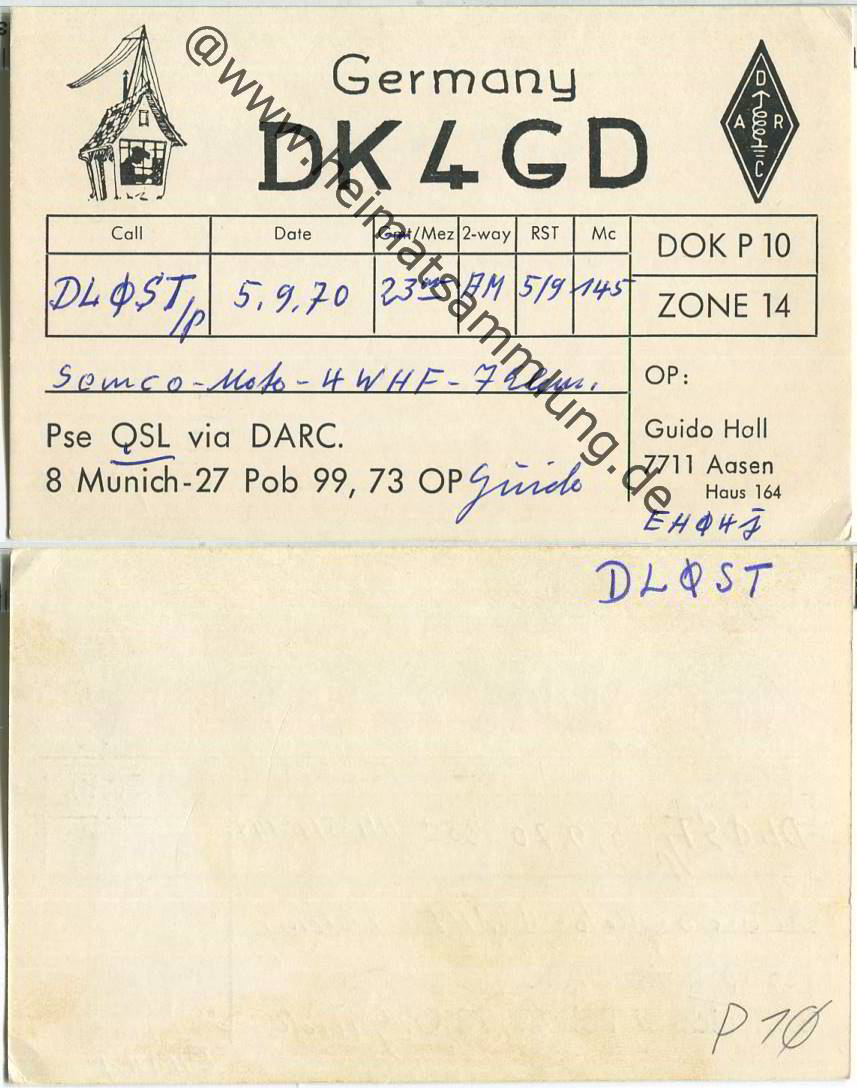 Germany
DK4GD
D
A R
C
Call Date Gmt/Mez 2-way RST Mc
DLØST/p 5.9.70 23 AM 5/9 145
DOK P 10
ZONE 14
Semco-Moto-4 WHF-7
OP:
Pse QSL via DARC.
8 Munich-27 Pob 99, 73 OP Guido
Guido Hall
7711 Aasen
Haus 164
EHØ4J
@www.heimatsammlung.de
DLØST
P 1Ø